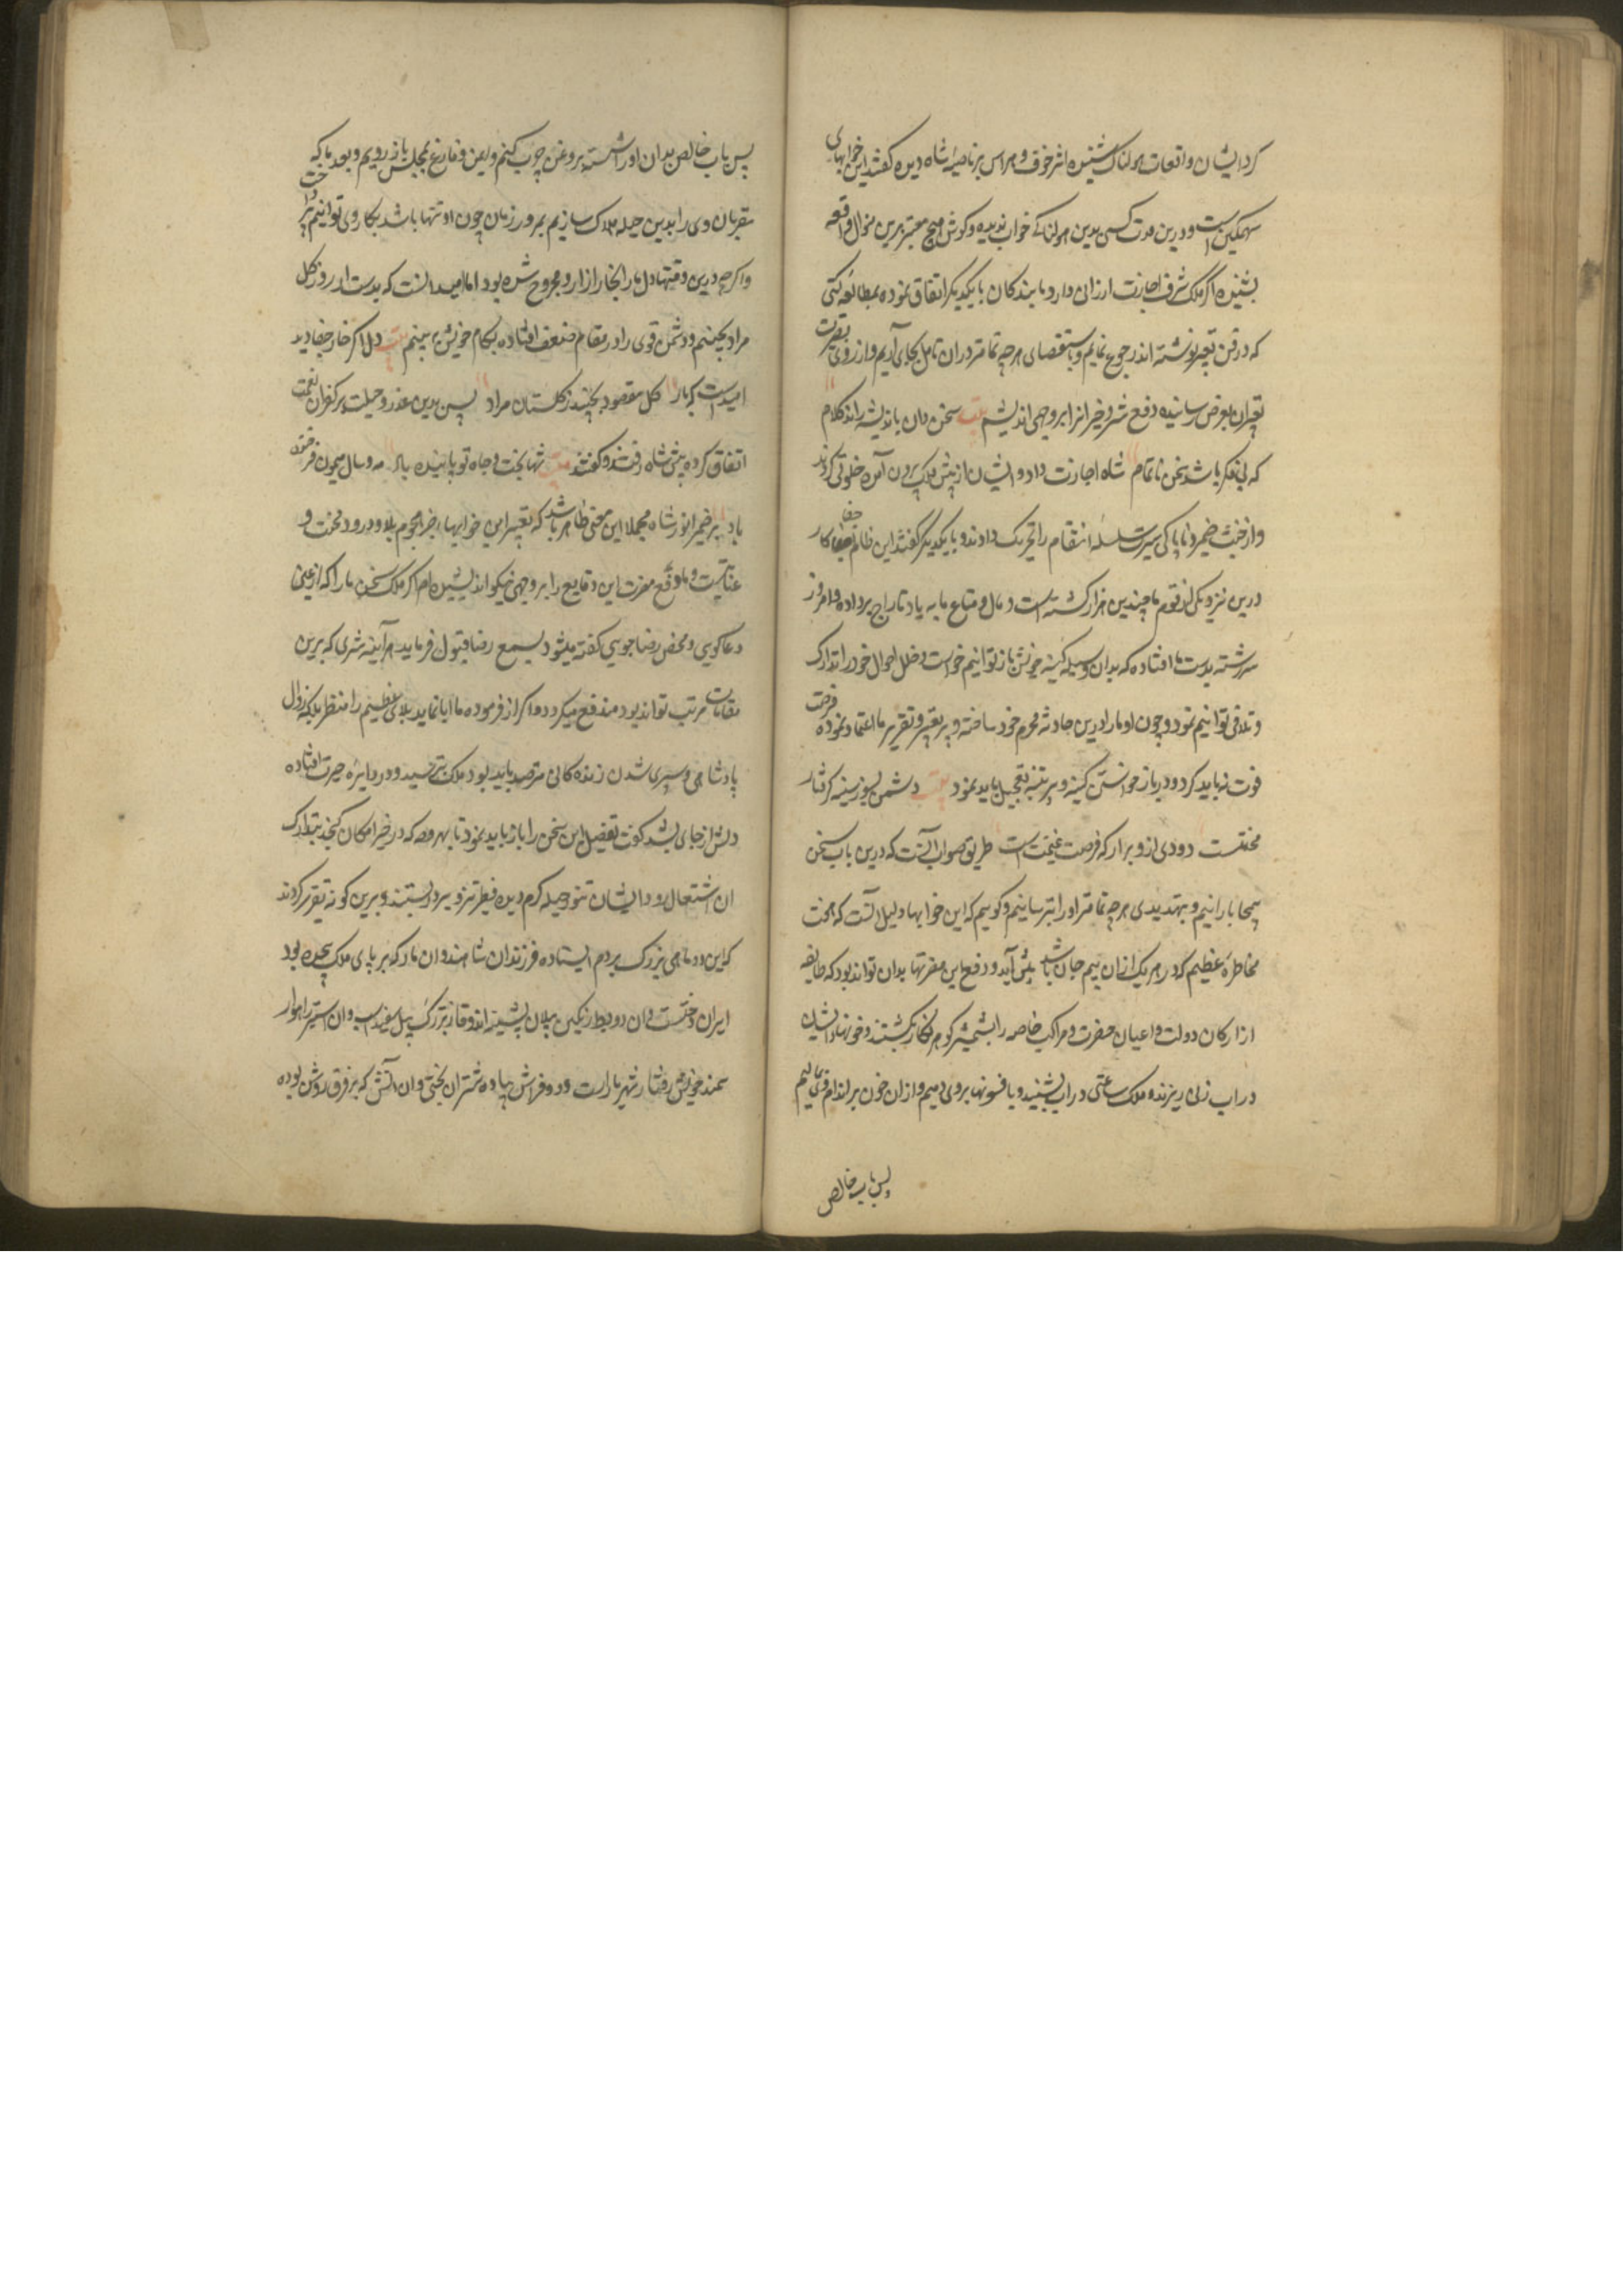 کرد ایشان واقعات هولناک شنیده اثر خوف و هراس بر ناصیهٔ شاه دیده گفتند این خوابهای
سهمگین است و درین مدت کسی بدین هولناکی خواب ندیده و گوش هیچ معتبر برین منوال واقعه
بشنیده اگر ملک شرف اجازت ارزانی دارد ما بندکان با یکدیگر اتفاق نموده بمطالعه کتبی
که در فن تعبیر نوشته اند رجوع نمایم و باستقصای هرچه تمامتر دران تامل بجای آریم و از روی بصیرت
تعبیر ان بعرض رسانیده دفع شر و ضرر انرا بر وجهی اندیشیم بیت سخن دان باندیشه راند کلام
که بی فکر باشد سخن ناتمام شاه اجازت داد و ایشان از پیش ملک بیرون آمده خلوتی کردند
و از خبث ضمیر و ناپاکی سیرت سلسله انتقام را تحریک دادند و با یکدیگر گفتند این ظالم جفا کار
درین نزدیکی از قوم ما چندین هزار کشته است و مال و متاع ما به باد تاراج برداده و امروز
سررشته بدست ما افتاده که بدان وسیله کینه خویش باز توانیم خواست و خلل احوال خود را تدارک
و تلافی توانیم نمود و چون او ما را درین حادثه محرم خود ساخته و بر تعبیر و تقریر ما اعتماد نموده فرصت
فوت نباید کرد و در باز خواستن کینه دیرینه تعجیل باید نمود بیت دشمن بسوز سینه گرفتار
محنتست دودی ازو برار که فرصت غنیمت است طریق صواب آنست که درین باب سخن
بیمحابا رانیم و بتهدیدی هرچه تمامتر او را بترسانیم و گوییم که این خوابها دلیل انست که محنت
مخاطرهٔ عظیم که در هر یک ازان بیم جان باشد پیش آید و دفع این مضرتها بدان تواند بود که طایفه
از ارکان دولت و اعیان حضرت و مراکب خاصه را بشمشیر گوهر نگار بکشتند و خونهاء ایشان
در اب زنی ریزند و ملک ساعتی دراب بنشیند و ما فسونها بروی دمیم و ازان خون بر اندام وی مالیم
پس باب خالص
پس باب خالص بدان او را شسته بروغن چرب کنیم و ایمن و فارغ بمجلس باز رویم و بعد ما که
مقربان وی را بدین حیله هلاک سازیم بمرور زمان چون او تنها باشد بکار وی توانیم پرداخت
و اگرچه درین وقتها دل ما را بخار ازار و مجروح شده بود اما امید انست که بدست ار روز گل
مراد بچینیم و دشمن قوی را در مقام ضعف افتاده بکام خویش ببینیم بیت دل اگر خار جفا دید
امید است که باز گل مقصود بچیند ز گلستان مراد پس بدین غدر و حیلت بر کفران نعمت
اتفاق کرده پیش شاه رفتند و گفتند بیت شها بخت و جاه تو پاینده باد مه و سال میمون و فرخنده
باد بر ضمیر انور شاه مجملا این معنی ظاهر باشد که تعبیر این خوابها جز هجوم بلا و درود محنت و
عنا نیست و ما وقع مضرت این وقایع را بر وجهی نیکو اندیشیده ام اگر ملک سخن ما را که از عین
دعا گویی و محض رضا جویی گفته میشود بسمع رضا قبول فرماید هر آینه شری که برین
مقامات مرتب تواند بود مندفع میگردد و اگر از فرموده ما ابا نماید بلای عظیم را منتظر بلکه زوال
پادشاهی و سپری شدن زندگانی مترصد باید بود ملک بترسید و در دایرهٔ حیرت افتاده
دلش از جای بشد گفت تفصیل این سخن را باز باید نمود تا بهر وجه که در حیز امکان گنجد بتدارک
ان اشتغال رود ایشان تنور حیله گرم دیده فطیر تزویر در بستند و برین گونه تقریر کردند
که این دو ماهی بزرگ بر دم ایستاده فرزندان شاهند و ان مار که بر پای ملک پیچیده بود
ایران دختست و ان دو بط رنگین پیلان پشینه اند و قاز بزرگ پیل سفید است و ان استر راهوار
سمند خویش رفتار شهریارست و دو فراش پیاده شتران بختی و ان آتش که بر فرق روشن بوده